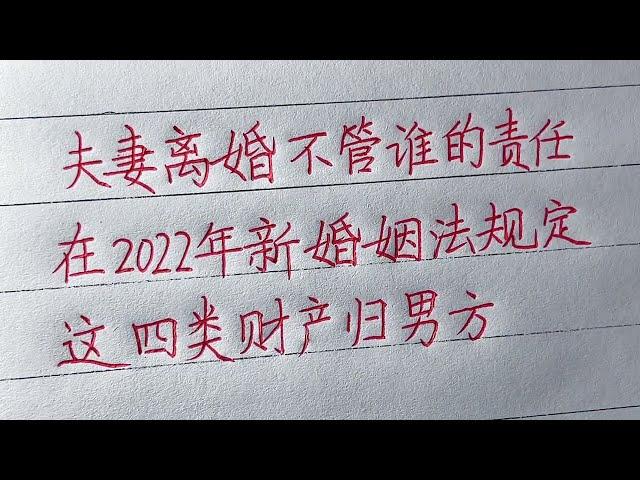 夫妻离婚不管谁的责任
在2022年新婚姻法规定
这四类财产归男方